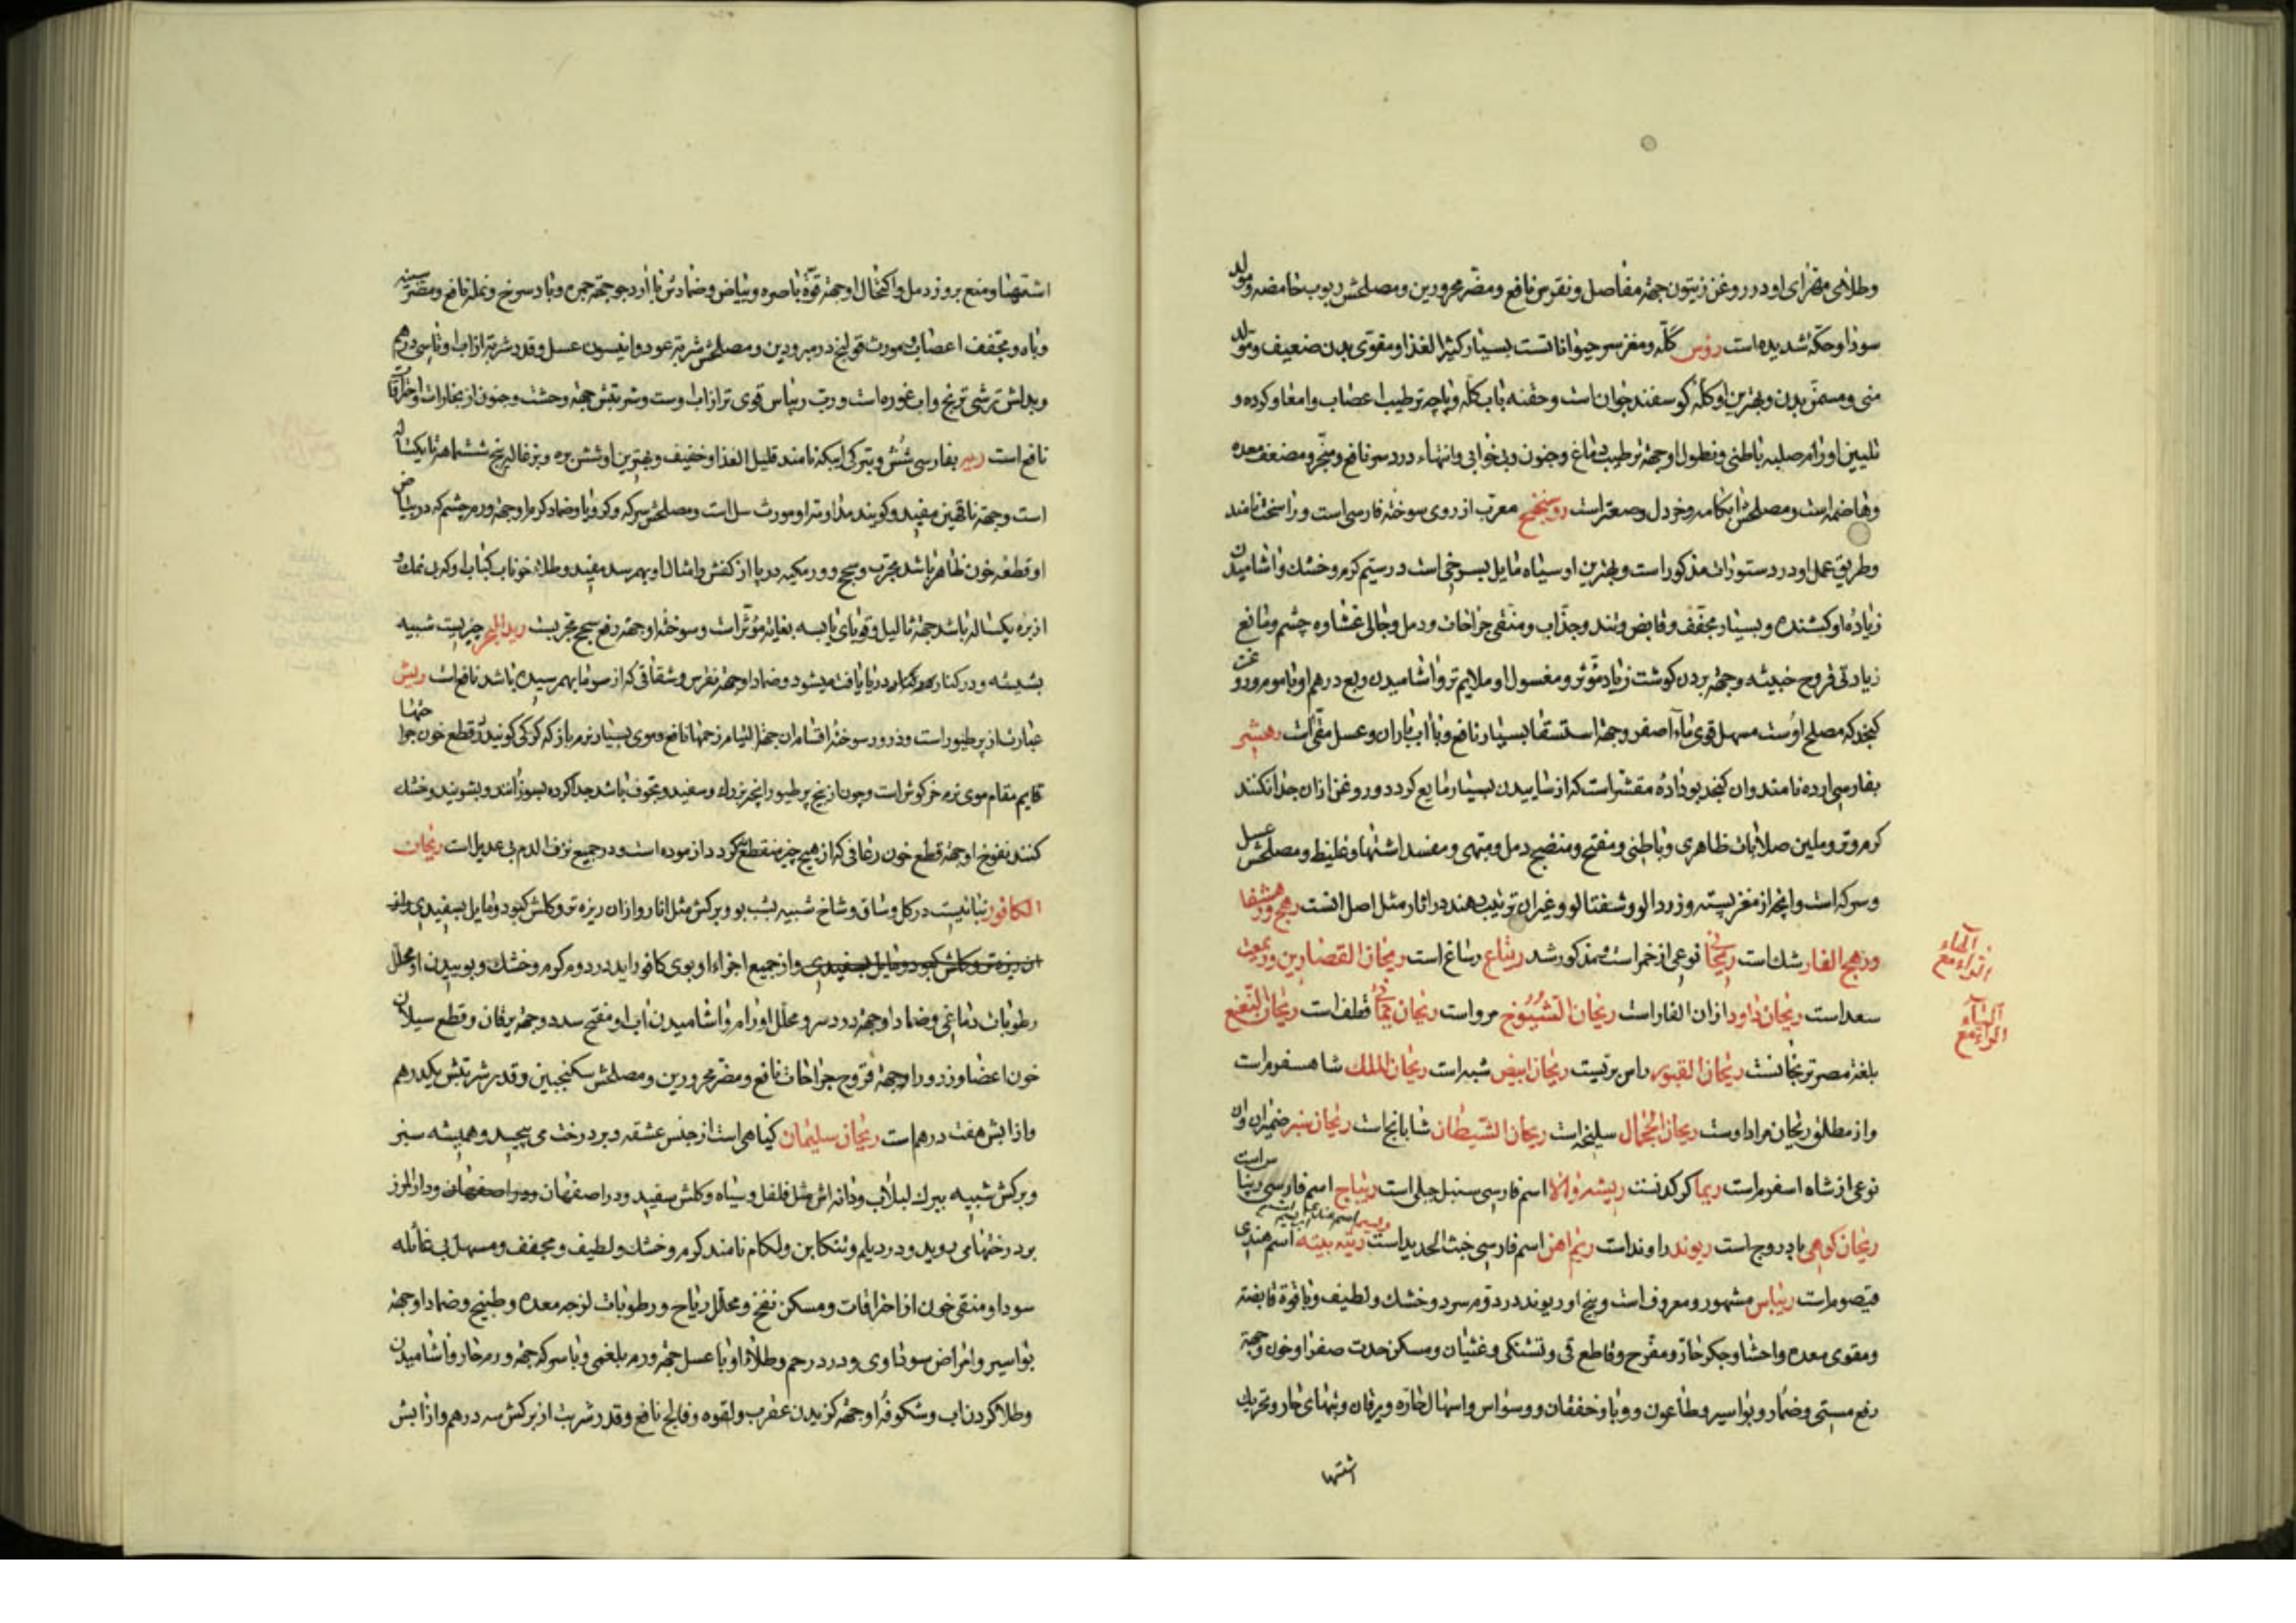 وطلای مهرای او در روغن زیتون جهة مفاصل و نقرس نافع و مضر محرورین و مصلحش ربوب حامضه و مولد
سودا و حکه شدیده است رؤس کله و مغز سر حیواناتست بسیار کثیر الغذا و مقوی بدن ضعیف و مولد
منی و مسمن بدن و بهترین او کله کوسفند جوان است و حقنه باب کله و پاچه ترطیب اعضاب و امعا و کرده و
تلیین اورام صلبه باطنی و نطول او جهة ترطیب دماغ و جنون و بیخوابی و انتهاء درد سر نافع و مبخر و مضعف معده
و هاضمه است و مصلحش ابکامه و خردل و صعتر است روسختج معرب از روی سوخته فارسی است و راسخت نامند
و طریق عمل او در دستورات مذکور است و بهترین او سیاه مایل بسرخی است در سیم کرم و خشک و اشامیدن
زیاده او کشنده و بسیار مجفف و قابض و تند و جذاب و منقی جراحات و دمل و جالی غشاوه چشم و مانع
زیادتی قروح خبیثه و جهة بردن کوشت زیاد مؤثر و مغسول او ملایم تر و اشامیدن ربع درهم او با موم و روغن
کنجد که مصلح اوست مسهل قوی ماء اصفر و جهة استسقا بسیار نافع و با اب باران و عسل مقی است رهشی
بفارسی ارده نامند و ان کنجد بو داده مقشر است که از ساییدن بسیار مایع کردد و روغن ازان جدا نکنند
کرم و تر و ملین صلابات ظاهری و باطنی و مفتح و منضج دمل و مبهی و مفسد اشتها و غلیظ و مصلحش عسل
و سرکه است و انچه از مغز پسته و زردالو و شفتالو و غیر ان ترتیب دهند در اثار مثل اصل انست رهج
و رهج الفار شک است نوعی از خمر است و مذکور شد ریتاع رساغ است ریحان القصارین
سعد است ریحان داود اذان الفار است ریحان الشیوخ مرو است ریحان یمانی قطف است ریحان النعنع
بلغة مصر ترنجانست ریحان القبور مراس برتیست ریحان ابیض شبه است ریحان الملک شاهسفرم است
و از مطلق ریحان مراد اوست ریحان الجمال سلیخه است ریحان الشیطان شابانج است ریحان سبز ضمیران و ان
نوعی از شاه اسفرم است ریما کرکدنست ریشه والا اسم فارسی سنبل جبلی است ریباج اسم فارسی ریباس است
ریحان کوهی بادروج است ریوند راوند است ریم اهن اسم فارسی خبث الحدید است اسم هندی
قیصوم است ریباس مشهور و معروف است و بیخ او ریوند در دوم سرد و خشک و لطیف و با قوة قابضه
و مقوی معده و احشا و جکر حار و مفرح و قاطع قی و تشنکی و غثیان و مسکن حدت صفرا و خون و جهة
رفع مستی و خمار و بواسیر و طاعون و وبا و خفقان و وسواس و اسهال حاره و یرقان و تبهای حار و تحریک
اشتها
الحاء
الراء مع
الیاء
الراء مع
اشتها و منع بروز دمل و اکتحال او جهة قوة باصره و بیاض و ضمادش با ارد جو جهة جمره و باد سرخ و نمله نافع و مضر سینه
و باه و مجفف اعصاب و مورث قولنج در مبرودین و مصلحش شربة عود و انیسون عسل و قدر شربة از اب او تا سی درهم
و بدلش ترشی ترنج و اب غوره است و رب ریباس قوی تر از اب اوست و شربتش جهة وحشت و جنون از بخارات احتراق
نافع است ریه بفارسی شش و بترکی ایبکه نامند قلیل الغذا و خفیف و بهترین او شش بره و بزغاله پنج ششماهه تا یکساله
است و جهة ناقهین مفید و کویند مداومت او مورث سل است و مصلحش سرکه و کرویا و ضماد کرم او جهة ورم چشم که در بیاض
او قطعه خون ظاهر باشد مجرب و سحج و ورمیکه در پا از کفش و امثال او بهم رسد مفید و طلاء خوناب کباب او که بی نمک و
از بره یکساله باشد جهة ثالیل و قوبای یابسه بغایة مؤثر است و سوخته او جهة رفع سحج مجربست ریة البحر چیزیست شبیه
بشیشه و در کنار دریا یافت میشود و ضماد او جهة نقرس و شقاقی که از سرما بهم رسیده باشد نافع است ریش
عبارت از پر طیور است و ذرور سوخته اقسام ان جهة التیام زخمها نافع و موی بسیار نرم باز که کرکی کویند در قطع خون جراحتها
قایم مقام موی نرم خرکوش است و چون از بیخ پر طیور انچه بزرک و سفید و مجوف باشد جدا کرده بسوزانند و بشویند و خشک
کنند نفوخ او جهة قطع خون رعافی که از هیچ چیز منقطع نکردد ازموده است و در جمیع نزف الدم بی عدیل است ریحان
الکافور نباتیست در کل و ساق و شاخ شبیه بشب بو و برکش مثل انار و ازان ریزه تر و کلش کبود و مایل بسفیدی و از
ان ریزه تر و کلش کبود و مایل بسفیدی و از جمیع اجزاء او بوی کافور اید در دوم کرم و خشک و بوییدن او محلل
رطوبات دماغی و ضماد او جهة درد سر و محلل اورام و اشامیدن اب او مفتح سدد و جهة یرقان و قطع سیلان
خون اعضا و ذرور او جهة قروح جراحات نافع و مضر محرورین و مصلحش سکنجبین و قدر شربتش یکدرهم
و از ابش هفت درهم است ریحان سلیمان کیاهی است از جنس عشقه و بر درخت می پیچد و همیشه سبز
و برکش شبیه ببرک لبلاب و دانه اش مثل فلفل و سیاه و کلش سفید و در اصفهان و در اصفهان و دارالمرز
بر درختها می روید و در دیلم و تنکابن ولکام نامند کرم و خشک و لطیف و مجفف و مسهل بی غائله
سودا و منقی خون از احتراقات و مسکن نفخ و محلل ریاح و رطوبات لزجه معده و طبیخ و ضماد او جهة
بواسیر و امراض سوداوی و درد رحم و طلاء او با عسل جهة ورم بلغمی و با سرکه جهة ورم حار و اشامیدن
و طلا کردن اب و شکوفه او جهة کزیدن عقرب و لقوه و فالج نافع و قدر شربت از برکش سه درهم و از ابش